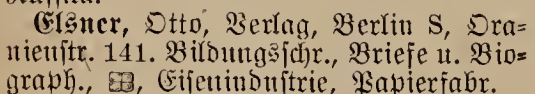 Elsner, Otto, Verlag, Berlin S, Ora=
nienstr. 141. Bildungsschr., Briefe u. Bio=
graph., Eisenindustrie, Papierfabr.